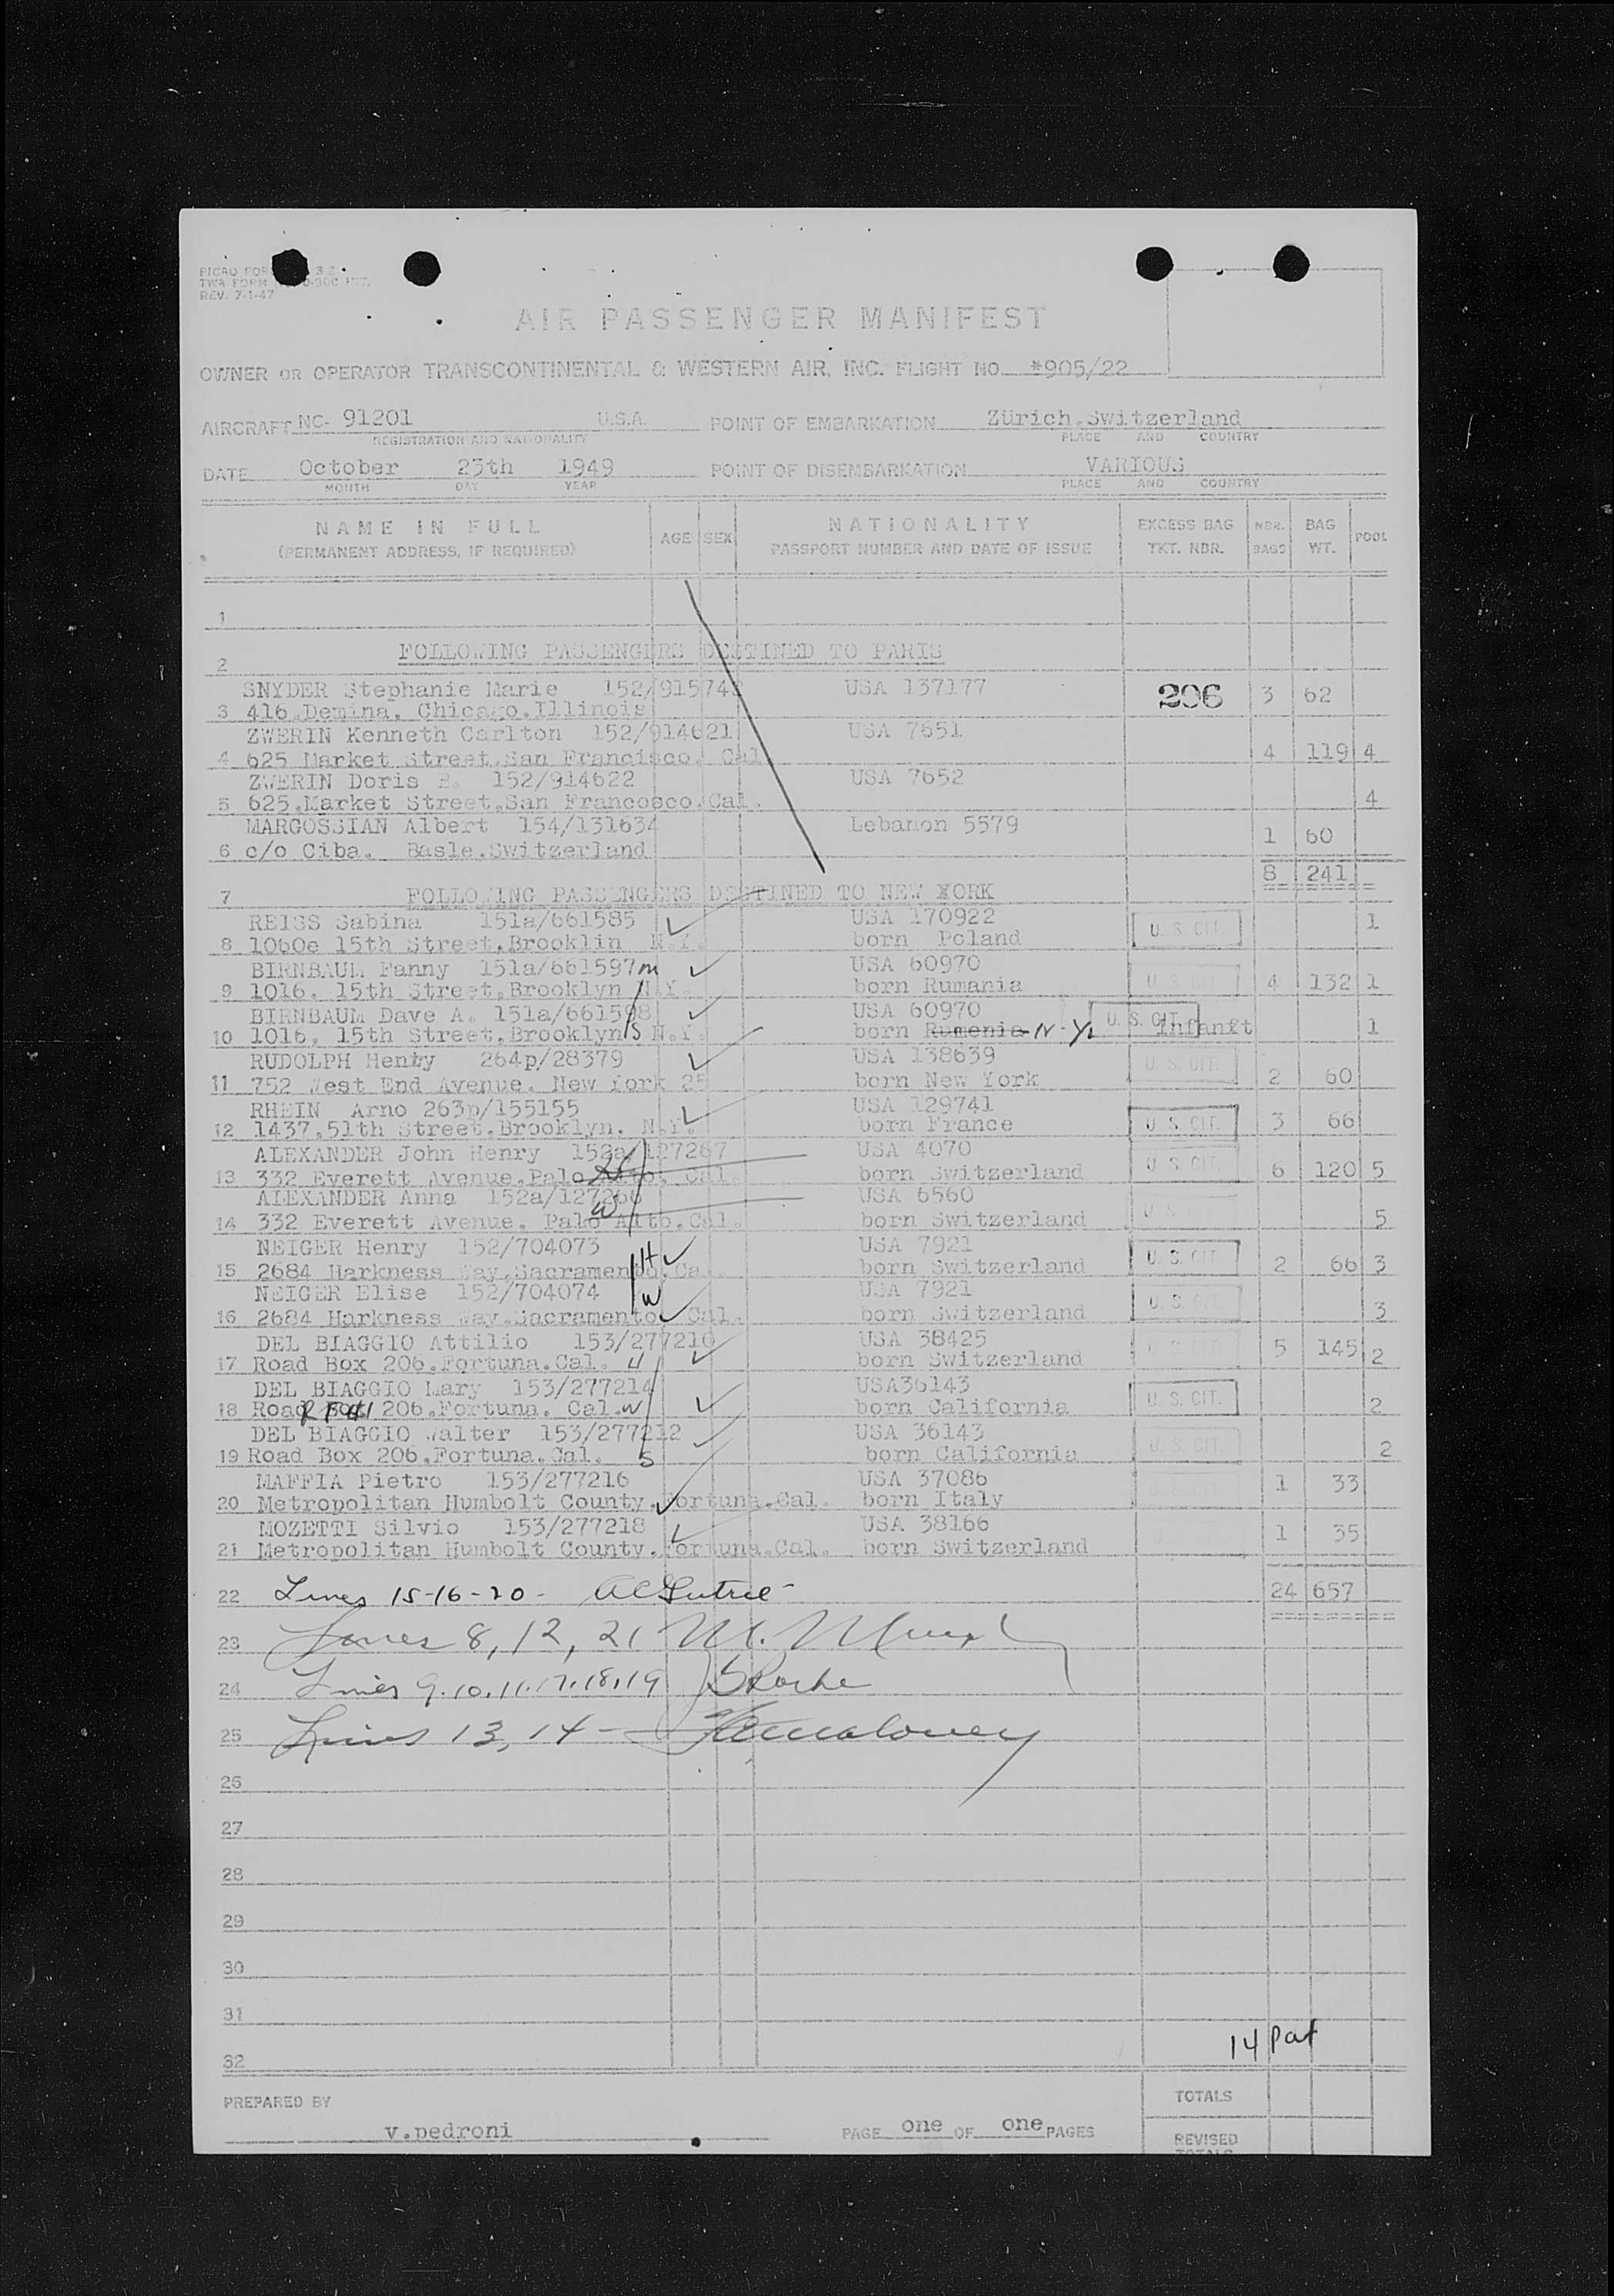 PICAO FOR
TWA FORM
REV. 7-1-47
AIR PASSENGER MANIFEST
OWNER OR OPERATOR TRANSCONTINENTAL & WESTERN AIR, INC. FLIGHT NO. #905/22
AIRCRAFT NC- 91201 U.S.A. POINT OF EMBARKATION Zürich.Switzerland
REGISTRATION AND NATIONALITY PLACE AND COUNTRY
DATE October 25th 1949 POINT OF DISEMBARKATION VARIOUS
MONTH DAY YEAR PLACE AND COUNTRY
NAME IN FULL AGE SEX NATIONALITY EXCESS BAG NBR. BAG POOL
(PERMANENT ADDRESS, IF REQUIRED) PASSPORT NUMBER AND DATE OF ISSUE TKT. NBR. BAGS WT.
1
2 FOLLOWING PASSENGERS DESTINED TO PARIS
SNYDER Stephanie Marie 152/915742 USA 137177 296 3 62
3 416.Demina. Chicago.Illinois
ZWERIN Kenneth Carlton 152/914621 USA 7651
4 625 Market Street.San Francisco. Cal 4 119 4
ZWERIN Doris 152/914622 USA 7652
5 625.Market Street.San Francosco.Cal. 4
MARGOSSIAN Albert 154/131634 Lebanon 5579 1 60
6 c/o Ciba. Basle.Switzerland
8 241
7 FOLLOWING PASSENGERS DESTINED TO NEW YORK
REISS Sabina 151a/661585 USA 170922 U. S. CIT. 1
8 1060e 15th Street.Brooklin N.Y. born Poland
BIRNBAUM Fanny 151a/661597 m USA 60970
9 1016. 15th Street.Brooklyn N.Y. born Rumania U. S. CIT. 4 132 1
BIRNBAUM Dave A. 151a/661598 USA 60970 U. S. CIT.
10 1016. 15th Street.Brooklyn S N.Y. born Rumenia N.Y. infanft 1
RUDOLPH Henry 264p/28379 USA 138639 U. S. CIT.
11 752 West End Avenue. New York 25 born New York 2 60
RHEIN Arno 263p/155155 USA 129741
12 1437.51th Street.Brooklyn. N.Y. born France U. S. CIT. 3 66
ALEXANDER John Henry 152a/127267 USA 4070
13 332 Everett Avenue.Palo Alto. Cal. born Switzerland U. S. CIT. 6 120 5
ALEXANDER Anna 152a/127268 USA 6560
14 332 Everett Avenue. Palo Alto.Cal. W born Switzerland U. S. 5
NEIGER Henry 152/704073 H USA 7921
15 2684 Harkness Way.Sacramento.Ca born Switzerland U. S. CIT. 2 66 3
NEIGER Elise 152/704074 W USA 7921
16 2684 Harkness Way.Sacramento. Cal. born Switzerland U. S. CIT. 3
DEL BIAGGIO Attilio 153/277210 USA 38425
17 Road Box 206.Fortuna.Cal. H born Switzerland U. S. CIT. 5 145 2
DEL BIAGGIO Mary 153/277214 USA36143
18 Road 206.Fortuna. Cal. W born California U. S. CIT. 2
DEL BIAGGIO Walter 153/277212 USA 36143
19 Road Box 206.Fortuna.Cal. S born California U. S. CIT. 2
MAFFIA Pietro 153/277216 USA 37086 1 33
20 Metropolitan Humbolt County.Fortuna.Cal. born Italy
MOZETTI Silvio 153/277218 USA 38166 1 35
21 Metropolitan Humbolt County.Fortuna.Cal. born Switzerland
22 Lines 15-16-20- 24 657
23 Lines 8, 12, 21 M.
24 Lines 9.10.11.17.18.19
25 Lines 13, 14 -
26
27
28
29
30
31
14 Pat
32
PREPARED BY v.pedroni PAGE one OF one PAGES TOTALS
REVISED
TOTALS